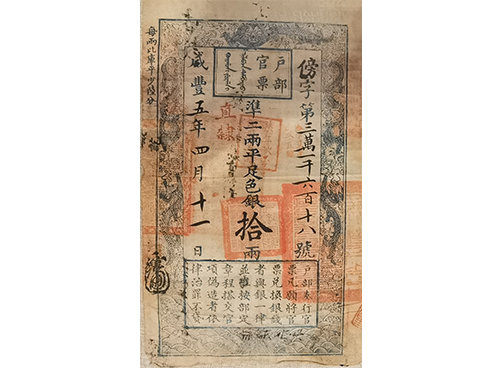 戶部
官票
傍字第三萬一千六百十八號
準二兩平足色銀拾兩
直隸
咸豐五年四月十一日
每兩比庫平少陸分
戶部奉行官
票凡願將官
票兌換銀錢
者與銀一律
並準按部定
章程搭交官
項偽造者依
律治罪不貸